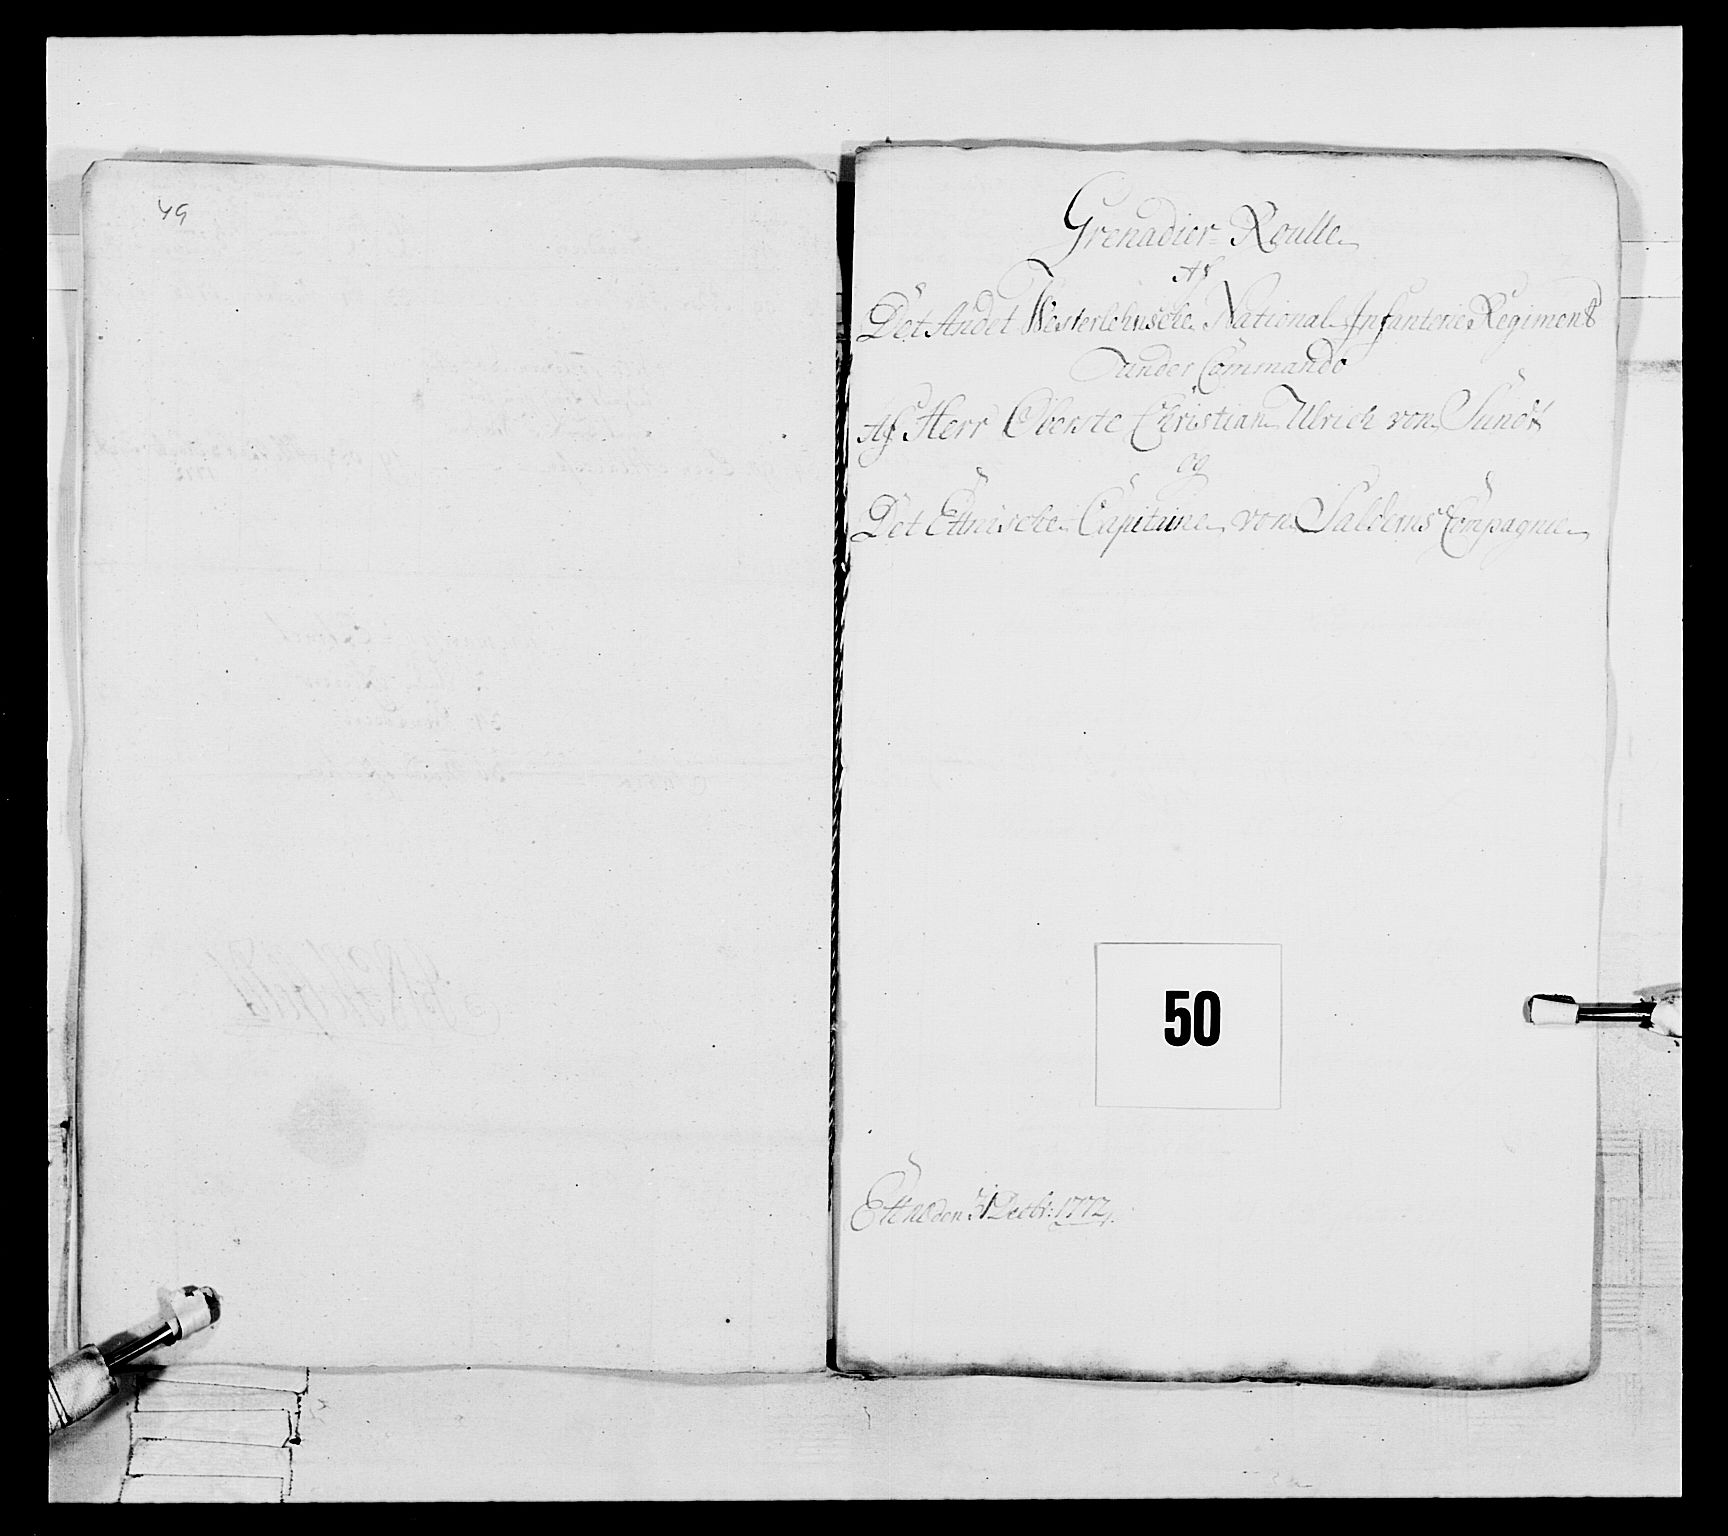 49
Grenadier-Roulle
Af
Det Andet Westerlehnsche National Infanterie Regiment
under Commando
Af Herr Oberste Christian Ulrich von Sundt
og
Det Etnische Capitaine von Salderns Compagnie
50
Etne den 31 Decbr: 1772.